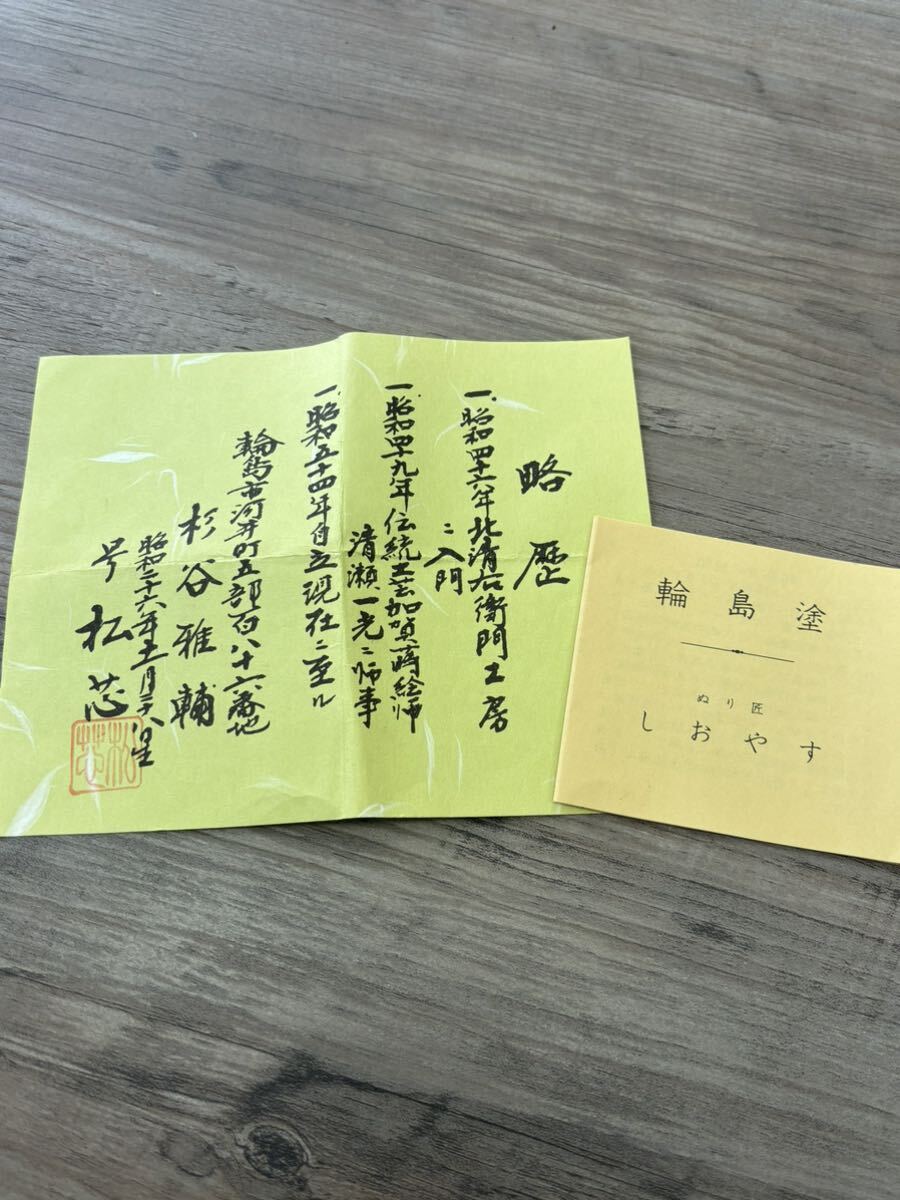 略歴
一、昭和四十六年北清右衛門工房
ニ入門
一、昭和四十九年伝統工芸加賀蒔絵師
清瀬一光ニ師事
一、昭和五十四年自立現在ニ至ル
輪島市河井町五部百八十六番地
杉谷雅輔
昭和二十六年五月二十八日生
号 松芯
松芯
輪島塗
ぬり匠
しおやす